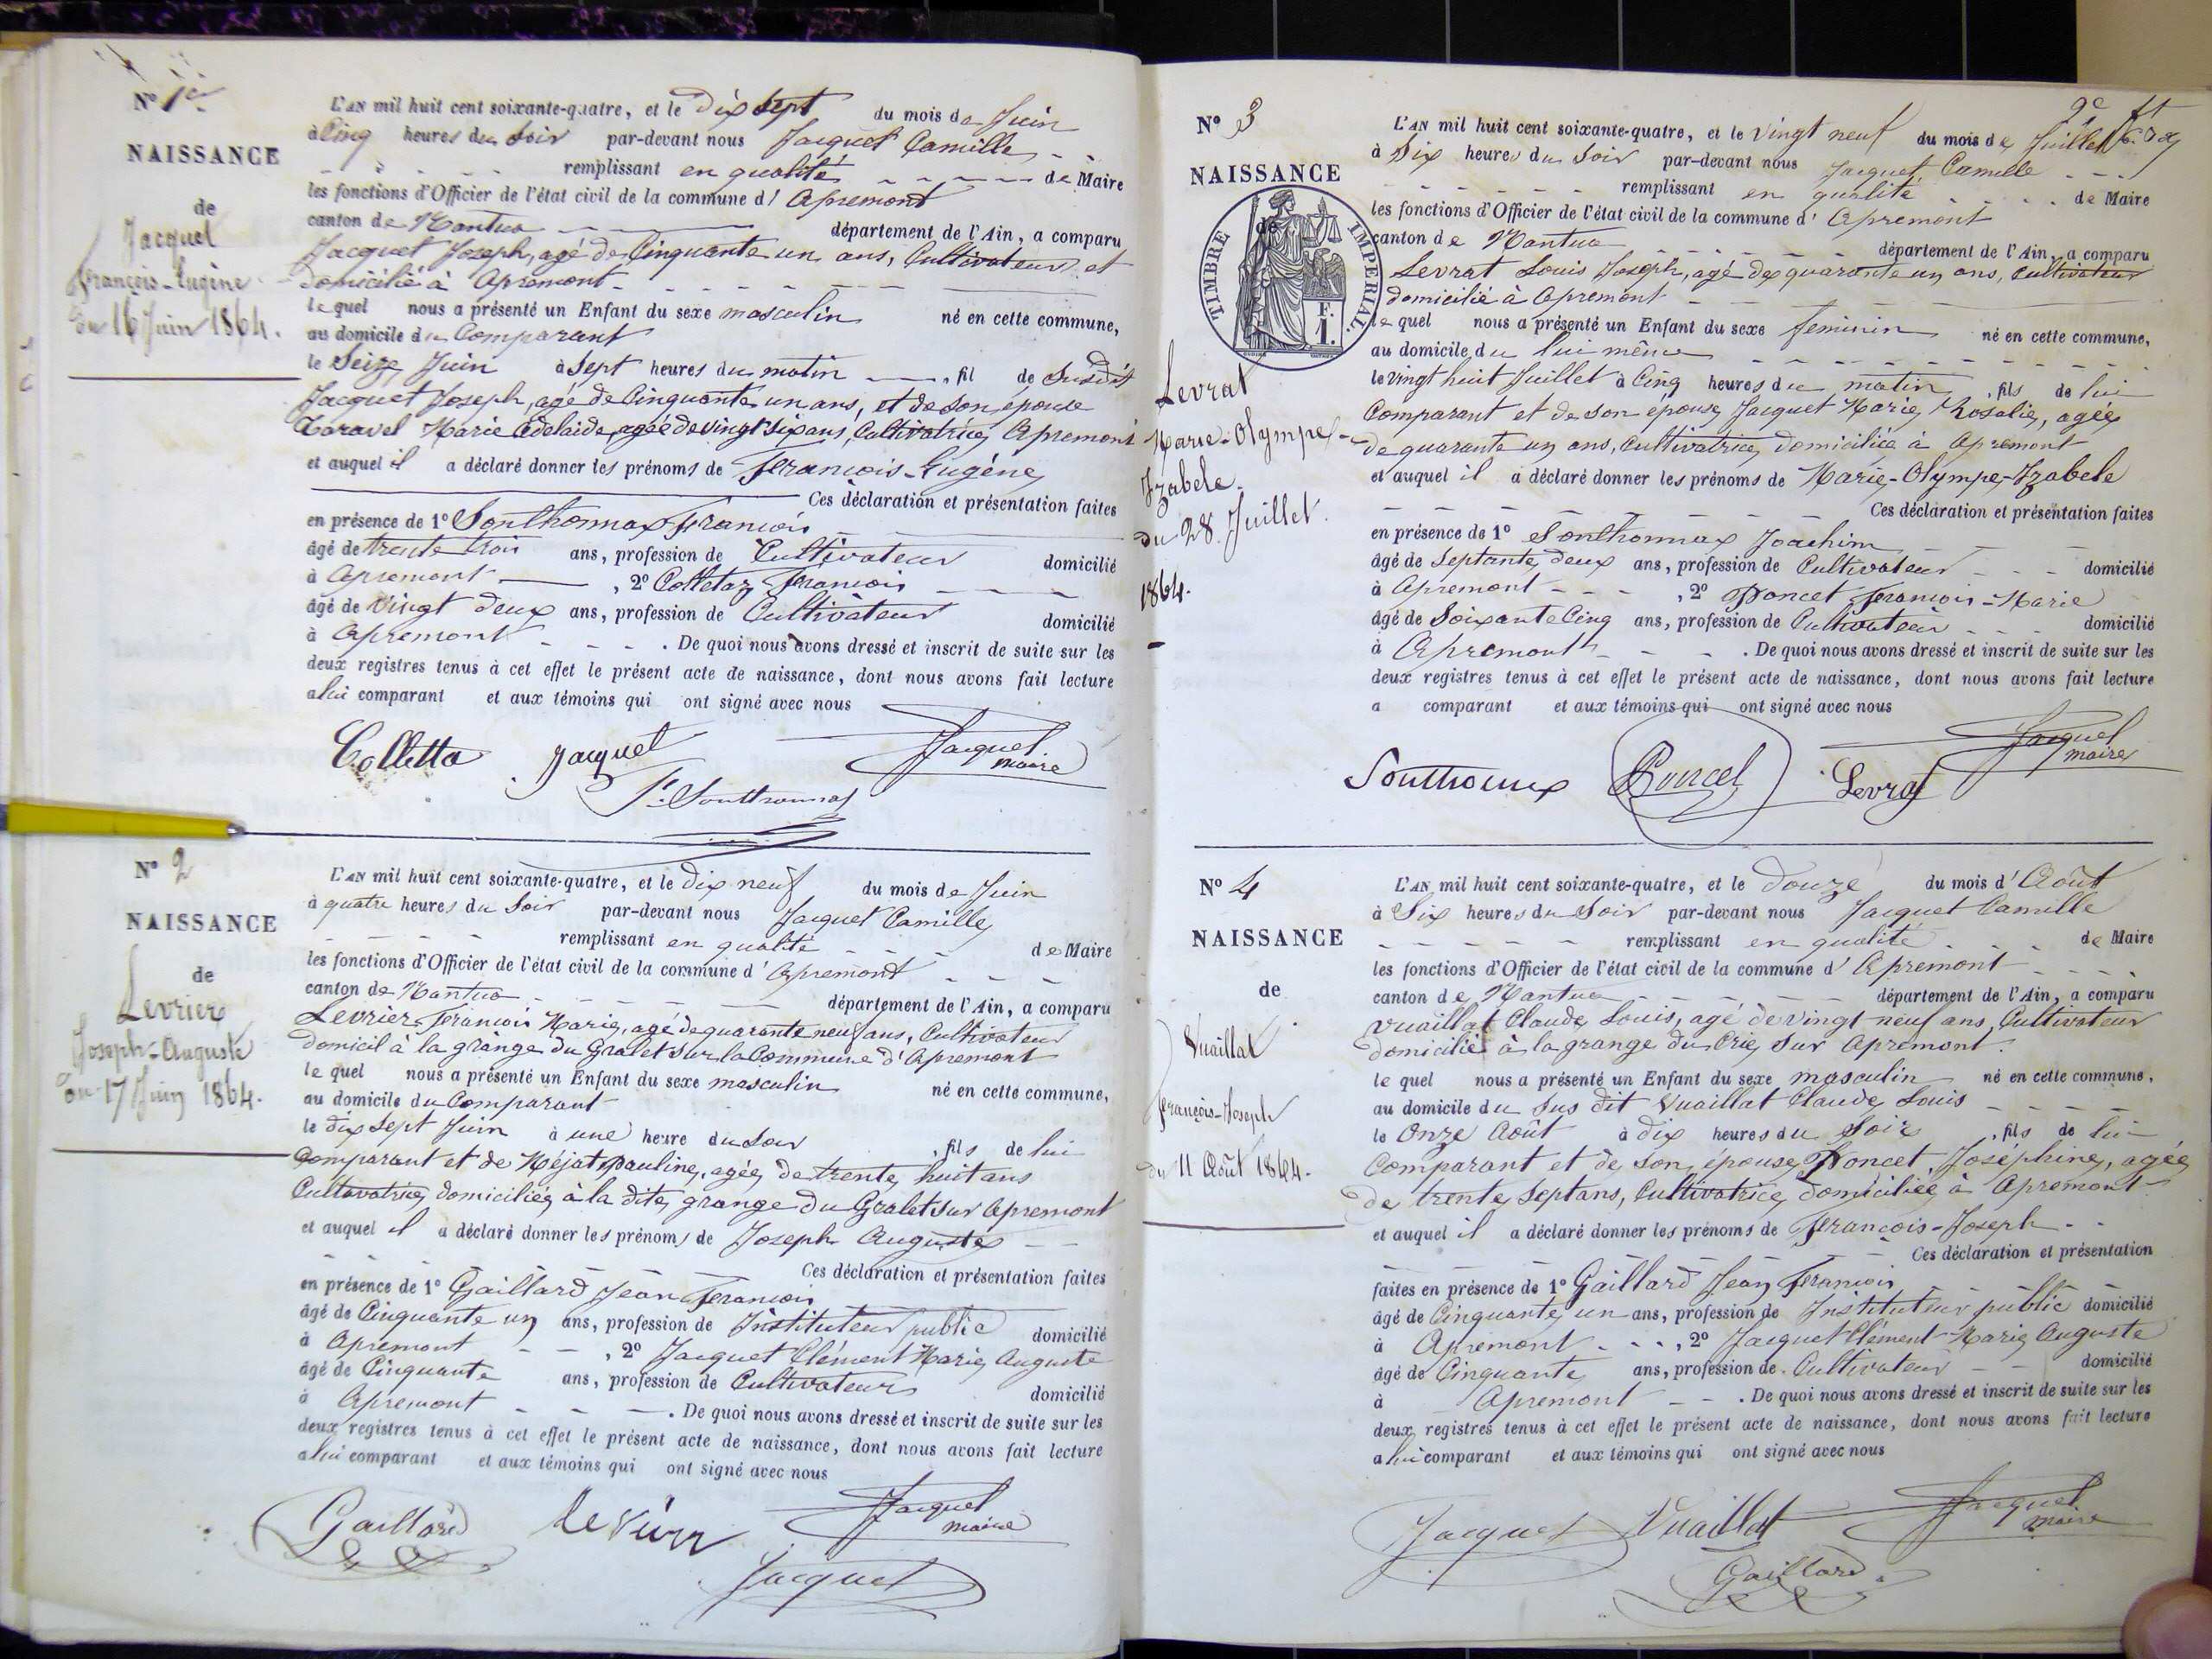 N° 1er
NAISSANCE
de
Jacquet
François-Eugène
du 16 Juin 1864.
L'AN mil huit cent soixante-quatre, et le dix sept du mois de Juin
à Cinq heures du Soir par-devant nous Jacquet Camille
remplissant en qualité de Maire
les fonctions d'Officier de l'état civil de la commune d' Apremont
canton de Nantua département de l'Ain, a comparu
Jacquet Joseph, agé de Cinquante un ans, Cultivateur et
domicilié à Apremont
le quel nous a présenté un Enfant du sexe masculin né en cette commune,
au domicile du Comparant
le Seize Juin à Sept heures du matin, fil de Susdit
Jacquet Joseph, agé de Cinquante un ans, et de son épouse
Marie Adelaide, agée de vingt six ans, Cultivatrice Apremont
et auquel il a déclaré donner les prénoms de François-Eugène
Ces déclaration et présentation faites
en présence de 1° Sonthonnax François
âgé de trente trois ans, profession de Cultivateur domicilié
à Apremont, 2° Colletaz François
âgé de Vingt deux ans, profession de Cultivateur domicilié
à Apremont. De quoi nous avons dressé et inscrit de suite sur les
deux registres tenus à cet effet le présent acte de naissance, dont nous avons fait lecture
a lui comparant et aux témoins qui ont signé avec nous
Colletta Jacquet Jacquet
maire
F. Sonthonnax
N° 2
NAISSANCE
de
Levrier
Joseph-Auguste
du 17 Juin 1864.
L'AN mil huit cent soixante-quatre, et le dix neuf du mois de Juin
à quatre heures du Soir par-devant nous Jacquet Camille
remplissant en qualité de Maire
les fonctions d'Officier de l'état civil de la commune d' Apremont
canton de Nantua département de l'Ain, a comparu
Levrier François Marie, agé de quarante neuf ans, Cultivateur
domicil à la grange du Gralet sur la Commune d'Apremont
le quel nous a présenté un Enfant du sexe masculin né en cette commune,
au domicile du Comparant
le dix sept Juin à une heure du Soir, fils de lui
Comparant et de Méjat Pauline, agée de trente huit ans
Cultivatrice, domiciliée à la dite grange du Gralet sur Apremont
et auquel il a déclaré donner les prénoms de Joseph Auguste
Ces déclaration et présentation faites
en présence de 1° Gaillard Jean François
âgé de Cinquante un ans, profession de Instituteur public domicilié
à Apremont, 2° Jacquet Clément Marie Auguste
âgé de Cinquante ans, profession de Cultivateur domicilié
à Apremont. De quoi nous avons dressé et inscrit de suite sur les
deux registres tenus à cet effet le présent acte de naissance, dont nous avons fait lecture
a lui comparant et aux témoins qui ont signé avec nous
Gaillard Jacquet
maire
Jacquet
N° 3
NAISSANCE
de
TIMBRE IMPERIAL.
F.
1.
Levrat
Marie-Olympe-
Izabele.
du 28 Juillet.
1864.
L'AN mil huit cent soixante-quatre, et le vingt neuf du mois de Juillet
à Six heures du Soir par-devant nous Jacquet Camille
remplissant en qualité de Maire
les fonctions d'Officier de l'état civil de la commune d' Apremont
canton de Nantua département de l'Ain, a comparu
Levrat Louis Joseph, agé de quarante un ans, Cultivateur
domicilié à Apremont
le quel nous a présenté un Enfant du sexe feminin né en cette commune,
au domicile du lui même
le vingt huit Juillet à Cinq heures du matin, fils de lui
Comparant et de son épouse Jacquet Marie Rosalie, agée
de quarante un ans, Cultivatrice, domiciliée à Apremont
et auquel il a déclaré donner les prénoms de Marie-Olympe-Izabele
Ces déclaration et présentation faites
en présence de 1° Sonthonnax Joachim
âgé de Septante deux ans, profession de Cultivateur domicilié
à Apremont, 2° Poncet François-Marie
âgé de Soixante Cinq ans, profession de Cultivateur domicilié
à Apremont. De quoi nous avons dressé et inscrit de suite sur les
deux registres tenus à cet effet le présent acte de naissance, dont nous avons fait lecture
a comparant et aux témoins qui ont signé avec nous
Poncet Levrat Jacquet
maire
N° 4
NAISSANCE
de
Vuaillat
François-Joseph
du 11 Août 1864.
L'AN mil huit cent soixante-quatre, et le douze du mois d'Août
à Six heures du Soir par-devant nous Jacquet Camille
remplissant en qualité de Maire
les fonctions d'Officier de l'état civil de la commune d' Apremont
canton de Nantua département de l'Ain, a comparu
Vuaillat Claude Louis, agé de vingt neuf ans, Cultivateur
domicilié à la grange du Crie sur Apremont.
le quel nous a présenté un Enfant du sexe masculin né en cette commune,
au domicile du Sus dit Vuaillat Claude Louis
le Onze Août à dix heures du Soir, fils de lui
Comparant et de son épouse Poncet Joséphine, agée
de trente Sept ans, Cultivatrice, domiciliée à Apremont
et auquel il a déclaré donner les prénoms de François-Joseph
Ces déclaration et présentation
faites en présence de 1° Gaillard Jean François
âgé de Cinquante un ans, profession de Instituteur public domicilié
à Apremont, 2° Jacquet Clément Marie Auguste
âgé de Cinquante ans, profession de Cultivateur domicilié
à Apremont. De quoi nous avons dressé et inscrit de suite sur les
deux registres tenus à cet effet le présent acte de naissance, dont nous avons fait lecture
a lui comparant et aux témoins qui ont signé avec nous
Jacquet Vuaillat Jacquet
maire
Gaillard